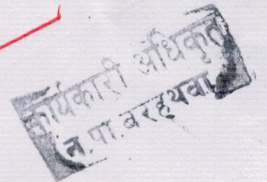 कार्यकारी अधिकृत
न.पा. बरहथवा